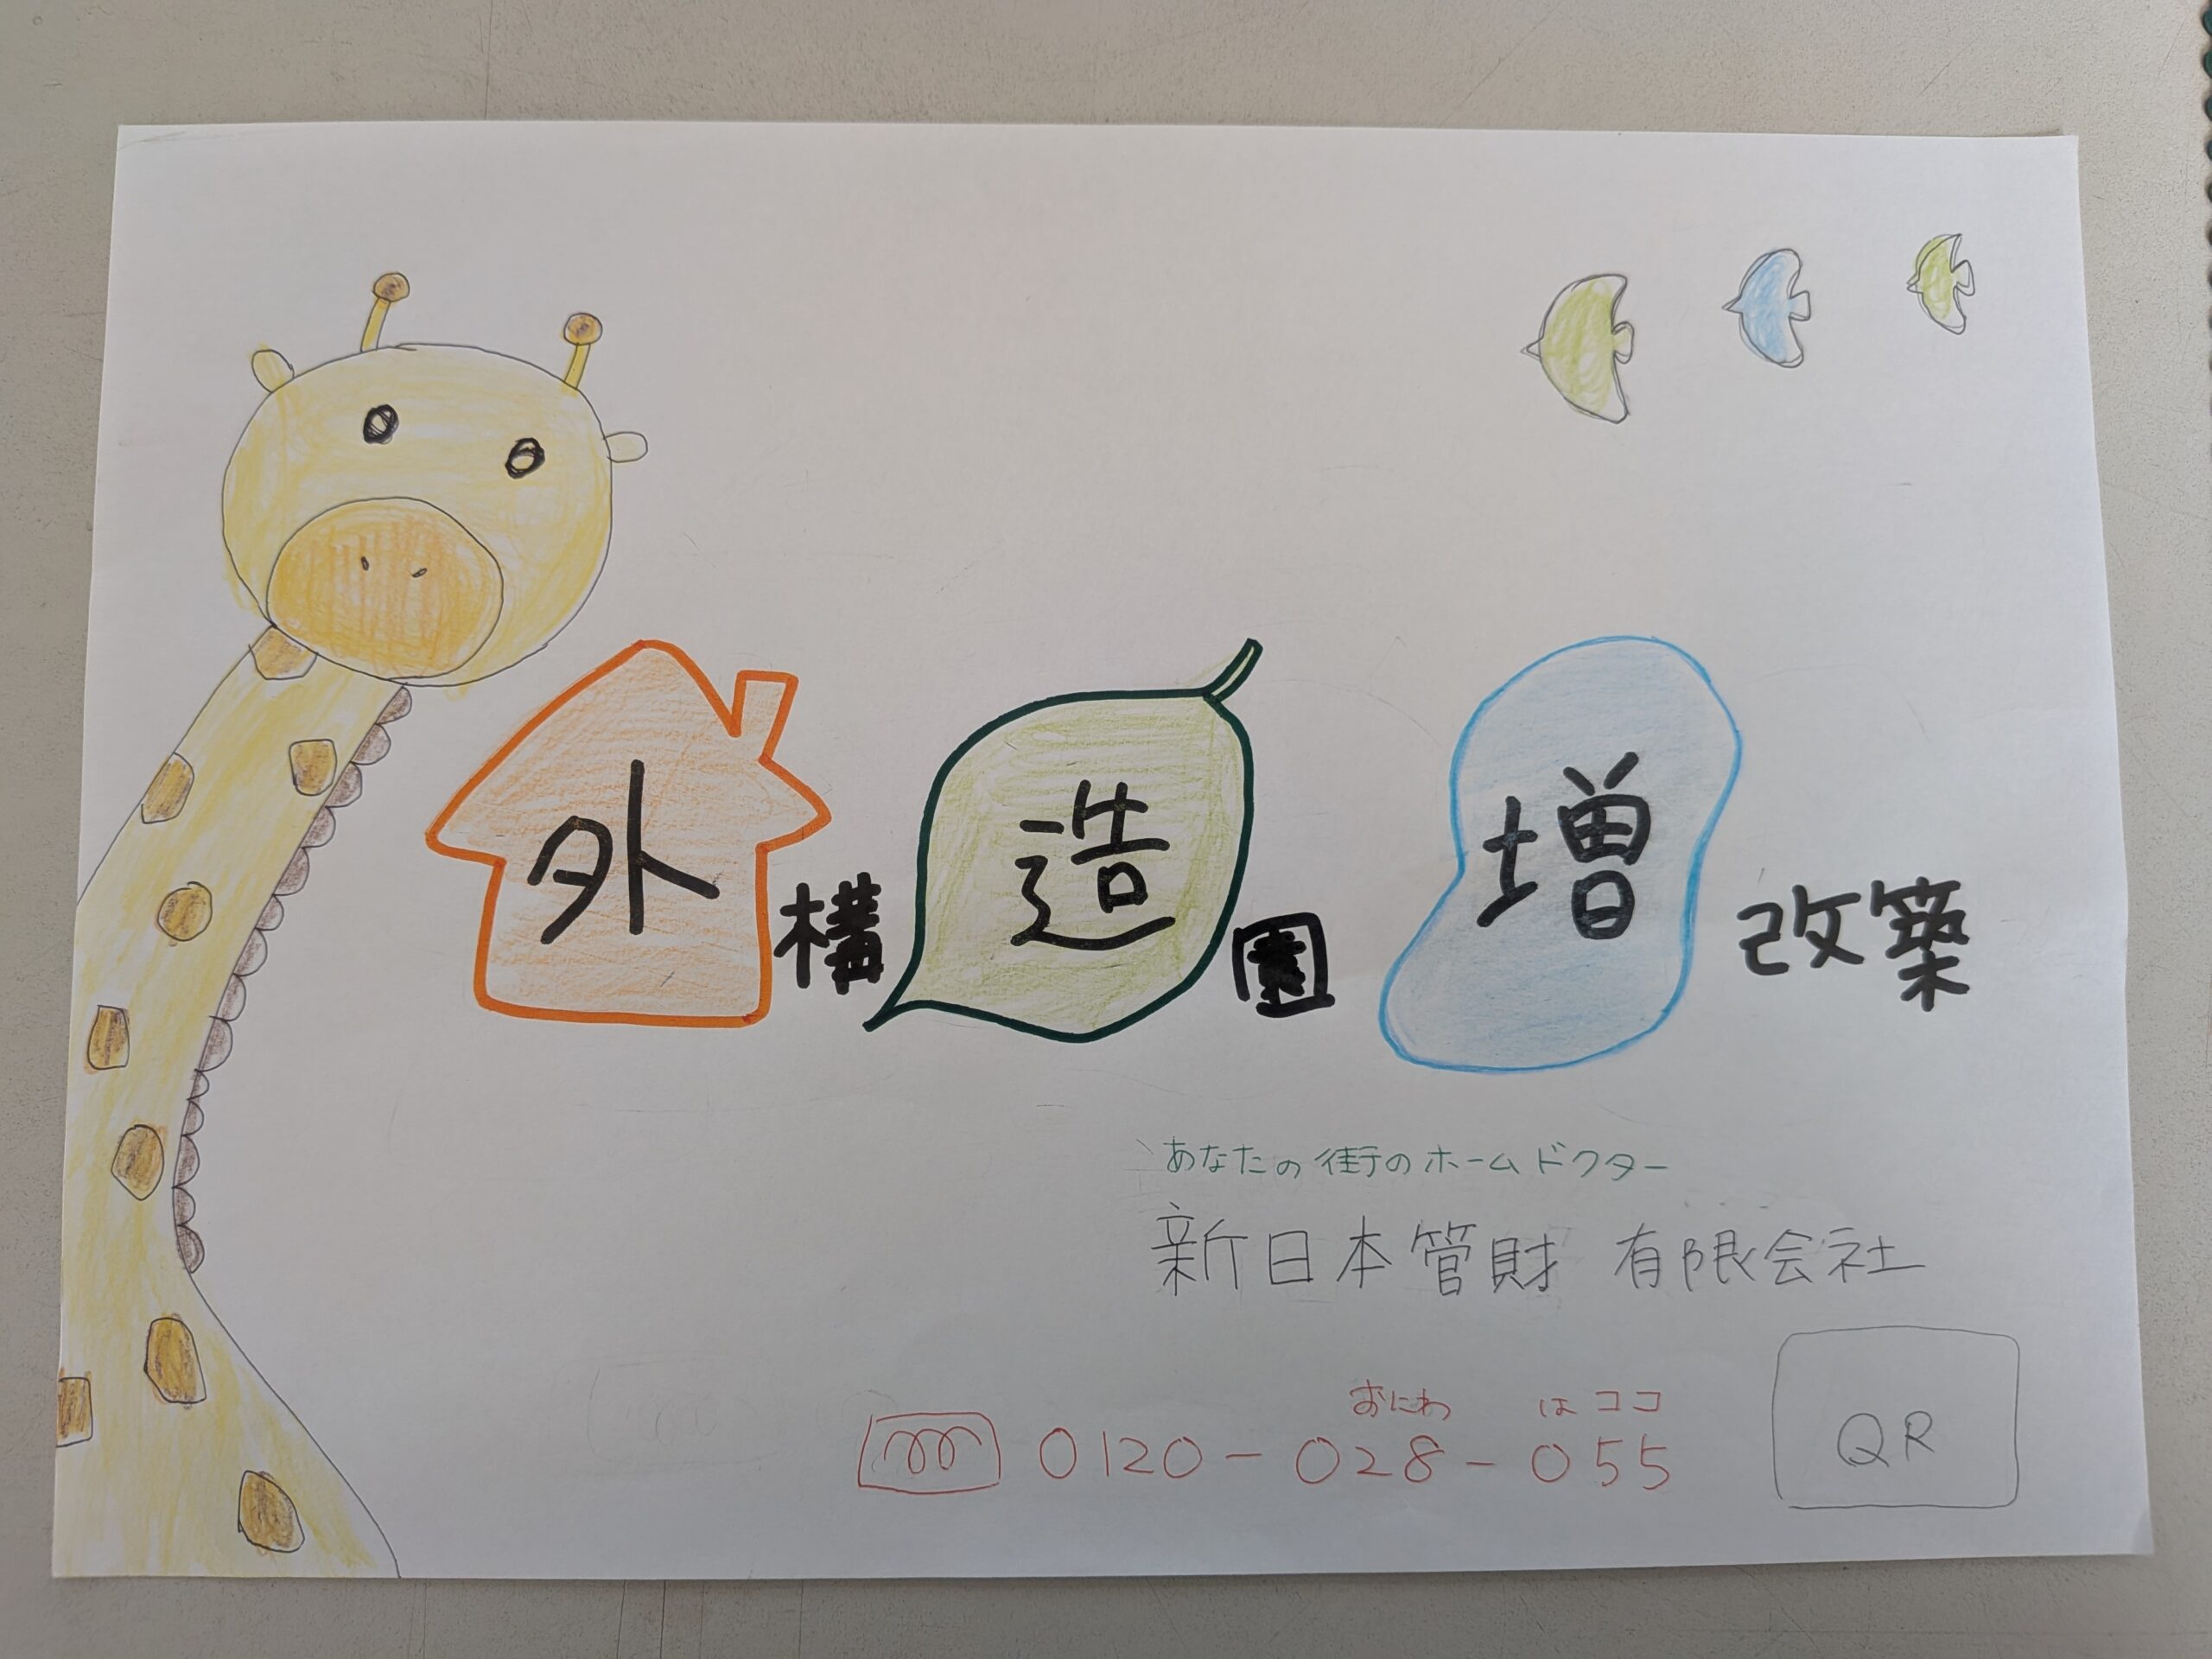 外構 造園 増改築
あなたの街のホームドクター
新日本管財 有限会社
おにわ はココ
0120-028-055
QR